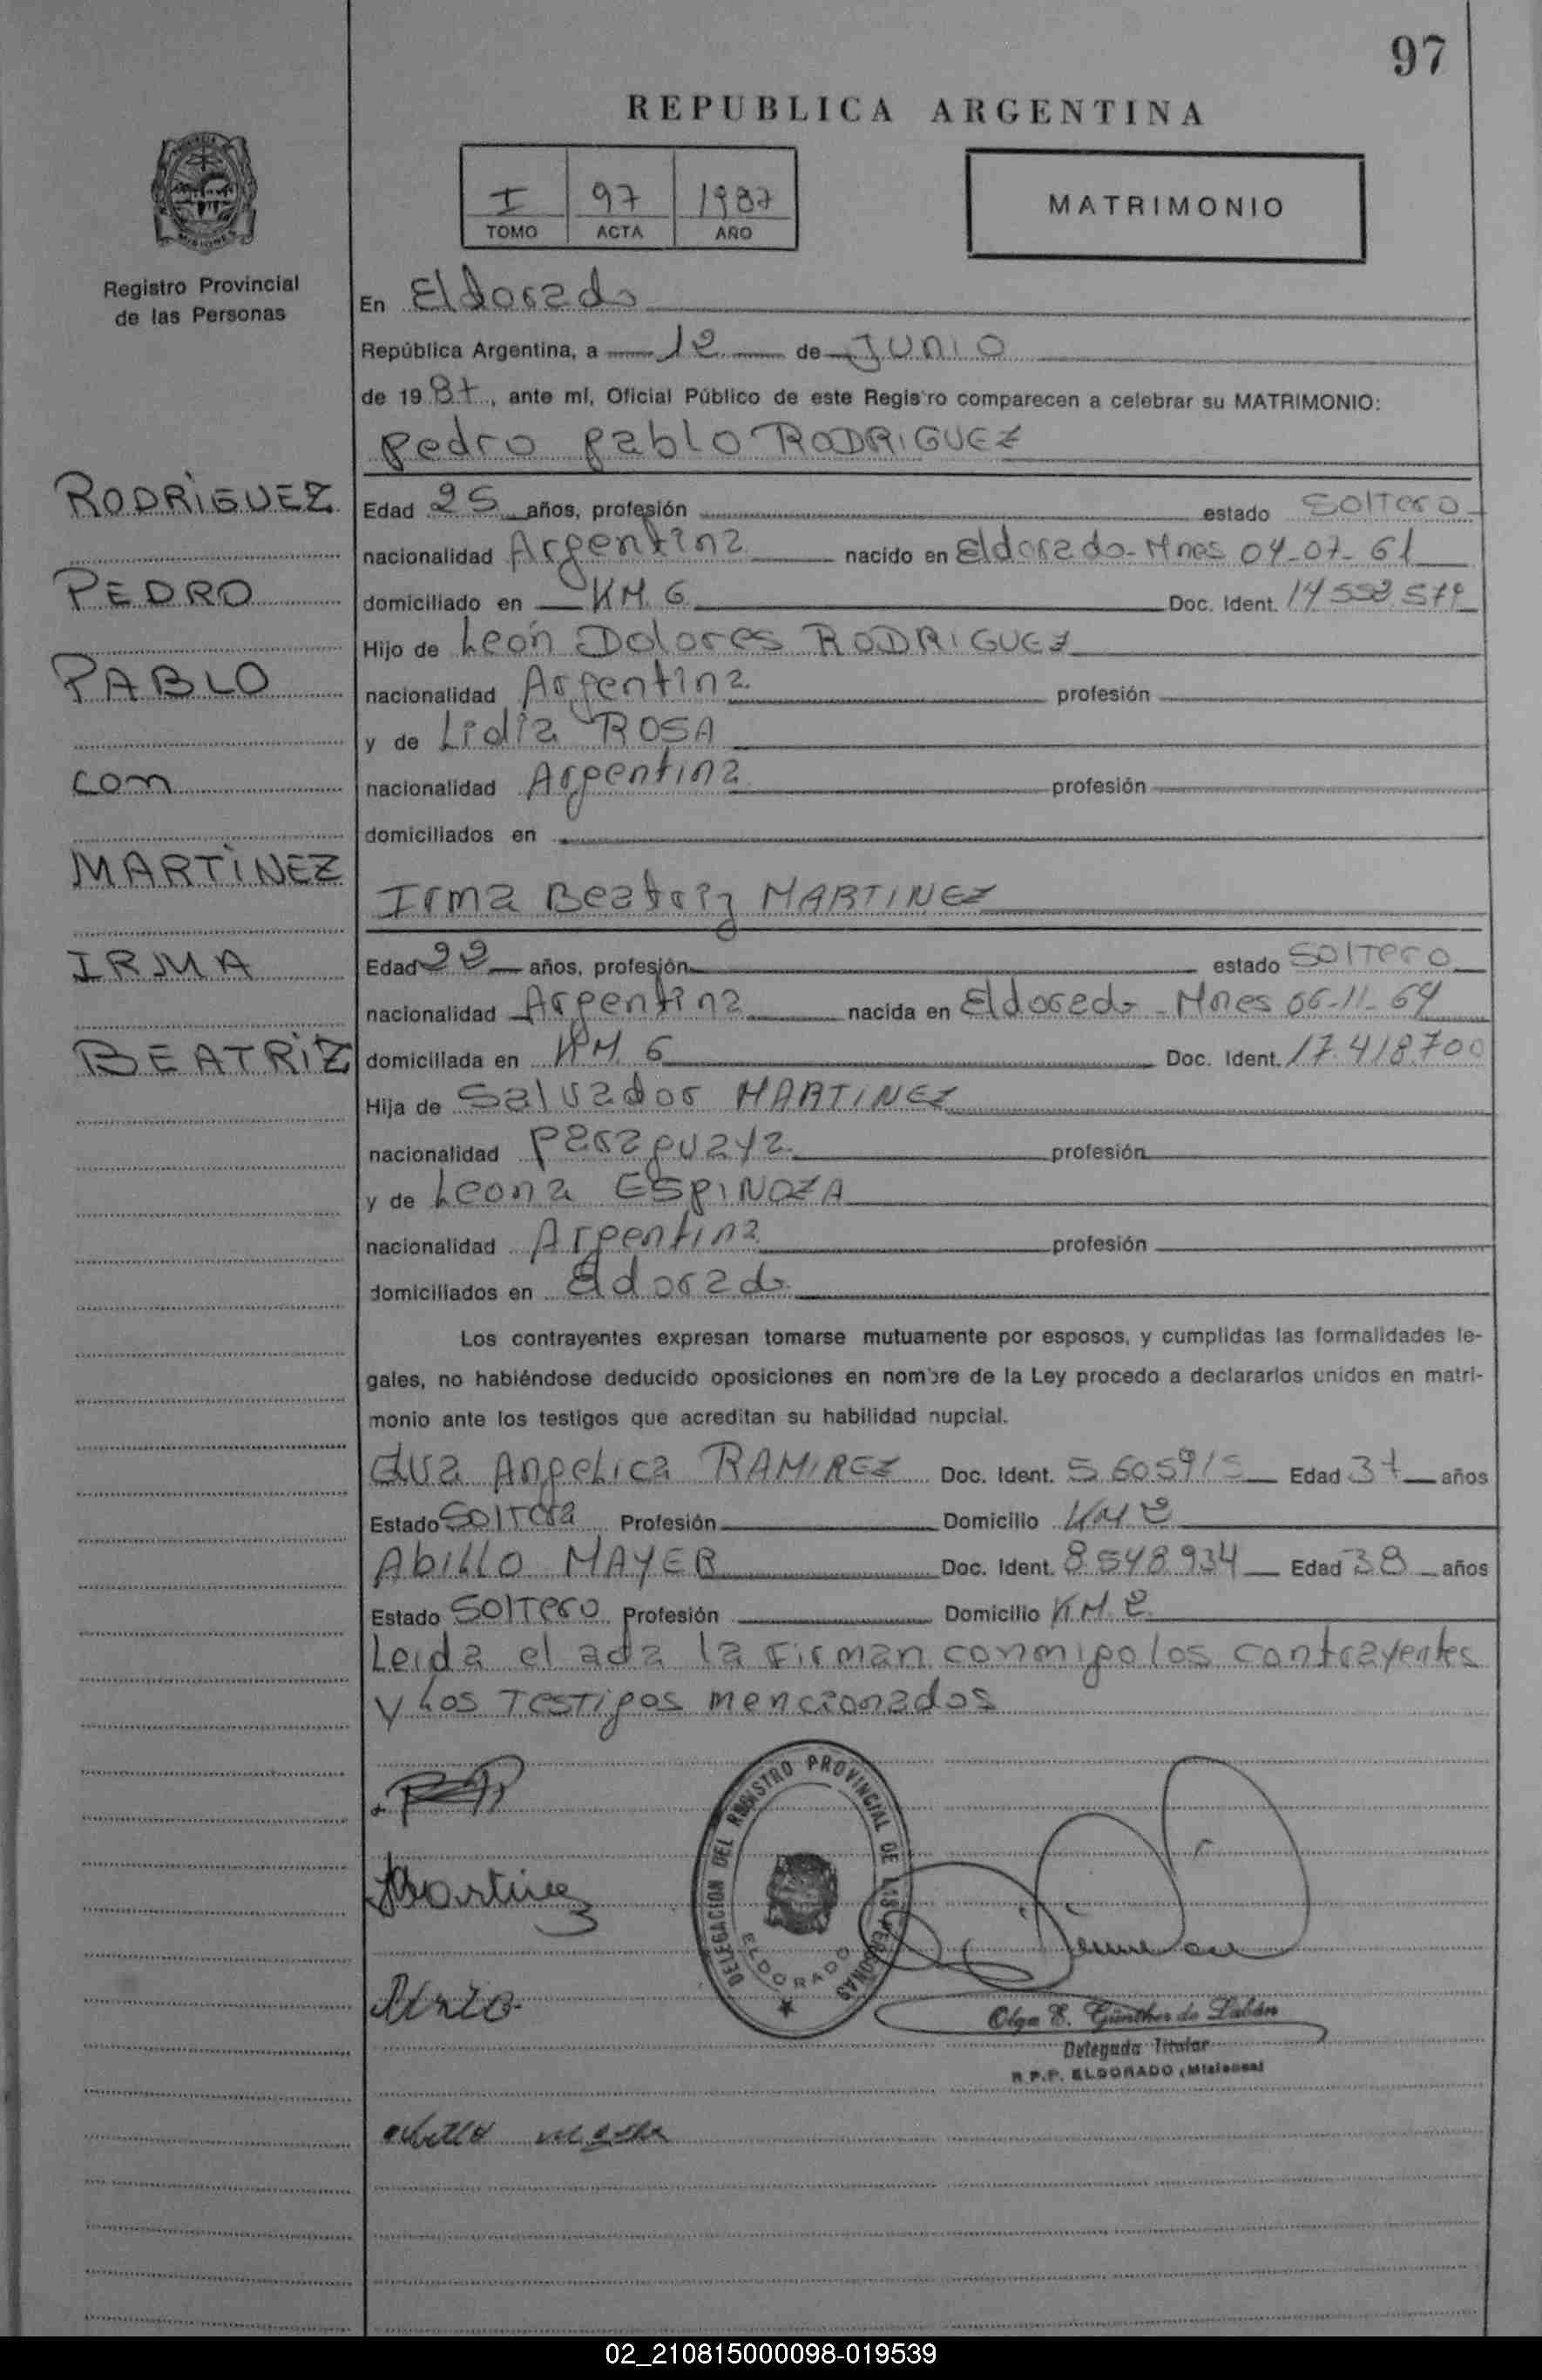 97
REPUBLICA ARGENTINA
I 97 1987
TOMO ACTA AÑO
MATRIMONIO
PROVINCIA
MISIONES
Registro Provincial
de las Personas
En Eldorado
República Argentina, a 12 de JUNIO
de 1987, ante mí, Oficial Público de este Registro comparecen a celebrar su MATRIMONIO:
Pedro Pablo RODRIGUEZ
RODRIGUEZ
PEDRO
PABLO
con
MARTINEZ
IRMA
BEATRIZ
Edad 25 años, profesión estado Soltero
nacionalidad Argentina nacido en Eldorado-Mnes 04-07-61
domiciliado en KM. 6 Doc. Ident.
Hijo de León Dolores RODRIGUEZ
nacionalidad Argentina profesión
y de Lidia ROSA
nacionalidad Argentina profesión
domiciliados en
Irma Beatriz MARTINEZ
Edad 22 años, profesión estado Soltero
nacionalidad Argentina nacida en Eldorado - Mnes 06-11-64
domiciliada en KM. 6 Doc. Ident. 17.418.700
Hija de Salvador MARTINEZ
nacionalidad Paraguaya profesión
y de Leona ESPINOZA
nacionalidad Argentina profesión
domiciliados en Eldorado
Los contrayentes expresan tomarse mutuamente por esposos, y cumplidas las formalidades le-
gales, no habiéndose deducido oposiciones en nombre de la Ley procedo a declararlos unidos en matri-
monio ante los testigos que acreditan su habilidad nupcial.
Angelica RAMIREZ Doc. Ident. Edad 37 años
Estado Soltera Profesión Domicilio KM 2
Abillo MAYER Doc. Ident. 8.548.934 Edad 38 años
Estado Soltero Profesión Domicilio KM. 2
Leida el acta la firman conmigo los contrayentes
y Los Testigos mencionados
DELEGACION DEL REGISTRO PROVINCIAL DE LAS PERSONAS
ELDORADO
Martinez
Olga E. Günther de Labán
Delegada Titular
R.P.P. ELDORADO (Misiones)
02_210815000098-019539